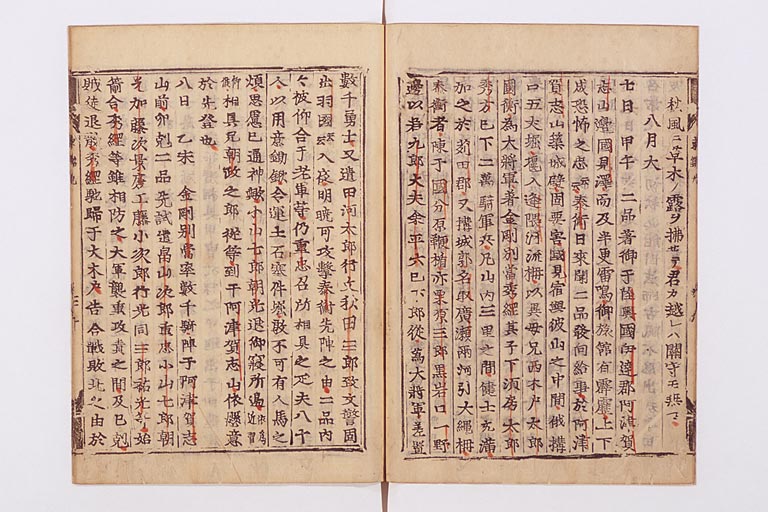 秋風ニ草木ノ露ヲ拂セテ君カ越レハ關守モ無シ
八月大
七日 甲午 二品著御于陸奥國伊逹郡阿津賀
志山邊國見澤而及半更雷鳴御旅館有霹靂上下
成恐怖之思云云泰衡日来聞二品發向給事於阿津
賀志山築城壁固要害國見宿與彼山之中間俄構
口五丈堀堰入逢隈河流柵以異母兄西木戸太郎
國衡為大將軍差金剛別當秀綱其子下須房太郎
秀方已下二萬騎軍兵凡山内三里之間健士充滿
加之於苅田郡又構城郭名取廣瀬兩河引大繩柵
泰衡者陣于國分原鞭楯亦栗原三郎黒岩口一野
邊以若九郎大夫余平六已下郎從為大將軍差置
數千勇士又遣田河太郎行文秋田三郎致文警固
出羽國云云入夜明暁可攻撃泰衡先陣之由二品内
々被仰合于老軍等仍重忠召所相具之疋夫八十
人以用意鋤鍬令運土石塞件堀敢不可有人馬之
煩思慮已通神歟小山七郎朝光退御寢所邊依為近習
祗候相具兄朝政之郎從等到于阿津賀志山依懸意
於先登也
八日 乙未 金剛別當率數千騎陣于阿津賀志
山前卯剋二品先試遣畠山次郎重忠小山七郎朝
光加藤次景廉工藤小次郎行光同三郎祐光等始
箭合秀綱等雖相防之大軍襲重攻責之間及巳剋
賊徒退散秀綱馳歸于大木戸告合戰敗北之由於